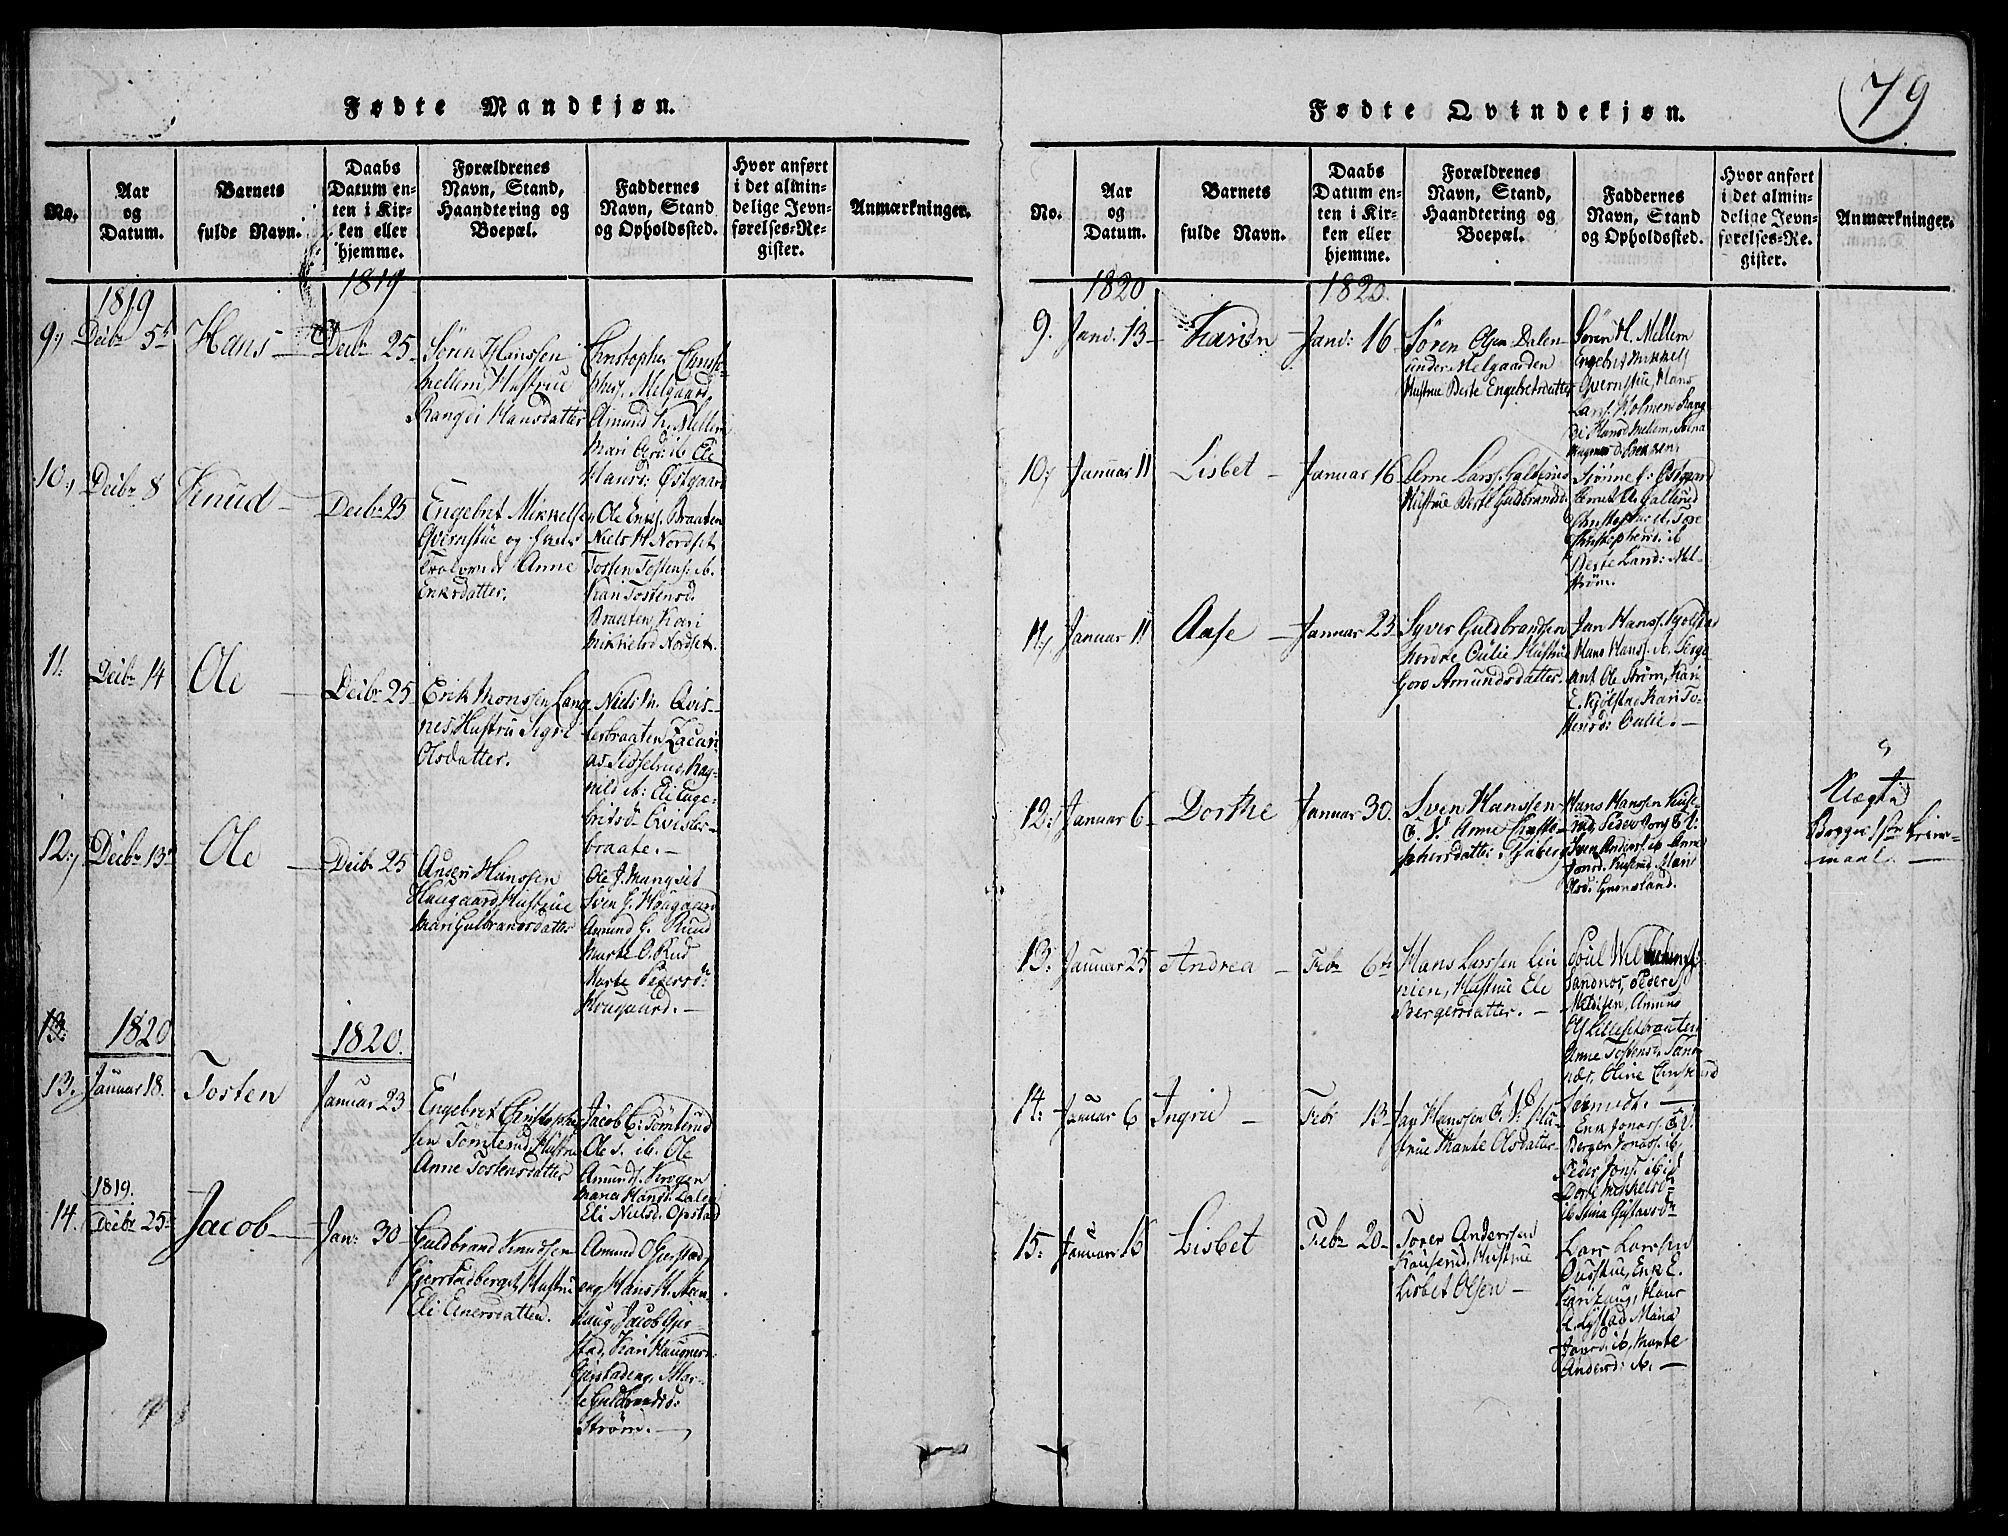 79
Fødte Mandkjøn.
No.
Aar
og
Datum.
Barnets
fulde Navn.
Daabs
Datum en-
ten i Kir-
ken eller
hjemme.
Forældrenes
Navn, Stand,
Haandtering og
Boepæl.
Faddernes
Navn, Stand
og Opholdssted.
Hvor anført
i det almin-
delige Jevn-
førelses-Re-
gister.
Anmærkninger.
1819
1819
9.
Decbr 5te
Hans
Decbr 25
Søren Hanssen
Mellem Hustrue
Rangei Hansdatter
Christopher Christ-
Melgaard,
Amund H. Mellem
Mari
Hansd: Østgaard
10.
Decbr 8
Knud
Decbr 25
Engebret Mikkelsen
Qvernstue og
Anne
Eriksdatter.
Ole Eriks. Braaten
Niels M. Nordset
Tosten Tostens: ib.
Kari Tostensd.
Braaten, Kari
Mikkelsd Nordset.
11.
Decbr 14
Ole
Decbr 25
Erik Monssen Lang-
nes Hustru Sigri
Olsdatter.
Niels M. Qvis-
terbraaten Zacari-
as Sidselrud, Rag-
nild ib: Eli Enge-
bridsd Qvister-
braate.
12.
Decbr 13
Ole
Decbr 25
Anders Hanssen
Haugaard Hustrue
Mari Gulbrandsdatter
Ole J. Mangset
Sven G. Hougaard
Amund G. Ruud
Marte O. Rud
Marte Pedersd:
Hougaard.
13.
1820
1820.
13.
Januar 18.
Tosten
Januar 23
Engebret Christopher-
sen Tomterud, Hustrue
Anne Tostensdatter
Jacob C: Tomterud
Ole S. ib. Ole
Amunds. Krogen
Maria Hansd. Dalen
Eli Nielsd. Opstad
1819.
14.
Decbr 25
Jacob
Jan: 30
Guldbrand Knudsen
Gjerstadberget, Hustrue
Eli Einersdatter.
Amund O Gjerstad-
eng Hans H. Sten-
haug, Jacob Gjer-
stad, Kari
Gjerstadeng, Mar-
te Guldbrandsd:
Strøm.
Fødte Qvindekjøn.
No.
Aar
og
Datum.
Barnets
fulde Navn.
Daabs
Datum en-
ten i Kir-
ken eller
hjemme.
Forældrenes
Navn, Stand,
Haandtering og
Boepæl.
Faddernes
Navn, Stand
og Opholdssted.
Hvor anført
i det almin-
delige Jevn-
førelses-Re-
gister.
Anmærkninger.
1820
1820.
9.
Janr. 13
Karen
Janr: 16
Søren Olsen Dalen
under Melgaarden
Hustrue Berte Engebretsdatter
Søren H. Mellem
Engebret Mikkels
Qvernstue, Hans
Lars. Holmen Rang-
di Hansd Mellem,
10.
Januar 11
Lisbet
Januar 16
Arne Larss. Galterud
Hustrue Berte Guldbrandsd.
Østgaard
Galterud
Christophersd. ib
Berte Larsd: Mel-
strøm.
11.
Januar 11
Aase
Januar 23
Syver Guldbrandsen
nordre Oulie Hustrue
Goro Amundsdatter.
Jan Hanss. Kjølstad
Hans Hanss. ib. Serge-
ant Ole Strøm, Kari
E. Kjølstad Kari To-
Oulie.
12.
Januar 6
Dorthe
Januar 30.
Sven Hanssen
E. V. Anne Christo-
phersdatter
Hans Hanssen
Peder Jons E V:
Sven Anderss. ib Anne
Jonsd. Mari
Olsd: Grønsland.
Uægte
Begges 1ste Leier-
maal.
13.
Januar 25
Andrea
Febr 6te
Hans Larssen Lin
nien, Hustrue Eli
Bergersdatter.
Poul
Sandnes, Peder
Anne Tostensd. Sand-
næs, Oline
14.
Januar 6
Ingrie
Febr 13
Jan Hanssen E. V. Hu-
strue Marte Olsdatter
Erik Jonass. E V.
Berger Jonass. ib,
Peder Jons. ibid
Dorte Mikkelsd
ib Stina Gustavsdr
15.
Januar 16
Lisbet
Febr 20
Torer Anderssen
Kauserud, Hustrue
Lisbet Olsen
Lars Larssen
Oustue, Erik E.
Hans
E. Lystad Maria
Jansd: ib, Marte
Andersd: ib.